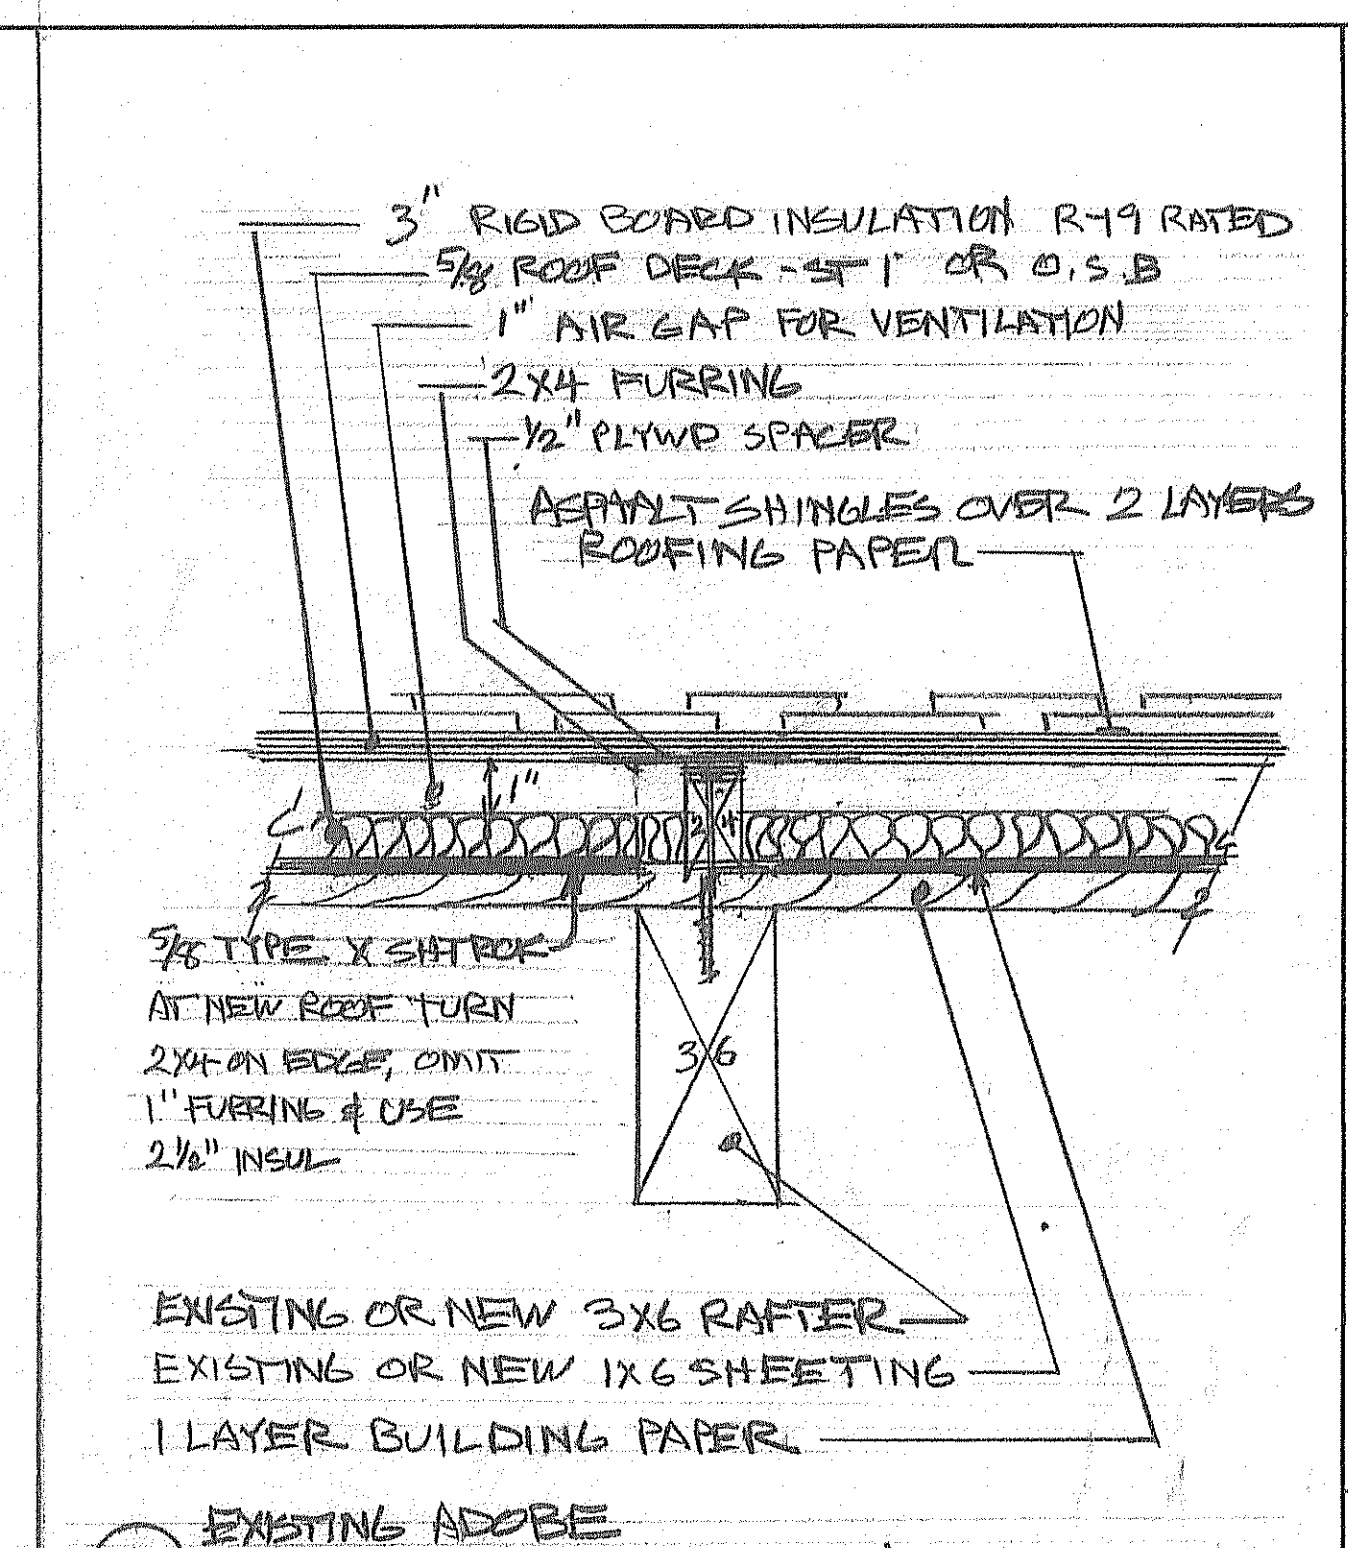 3" RIGID BOARD INSULATION R-19 RATED
5/8 ROOF DECK - ST 1 OR O.S.B
1" AIR GAP FOR VENTILATION
2X4 FURRING
1/2" PLYWD SPACER
ASPHALT SHINGLES OVER 2 LAYERS
ROOFING PAPER
1"
2 4
5/8 TYPE X SHTROK
AT NEW ROOF TURN
2X4 ON EDGE, OMIT
1" FURRING & USE
2 1/2" INSUL
3 6
EXISTING OR NEW 3X6 RAFTER
EXISTING OR NEW 1X6 SHEETING
1 LAYER BUILDING PAPER
EXISTING ADOBE